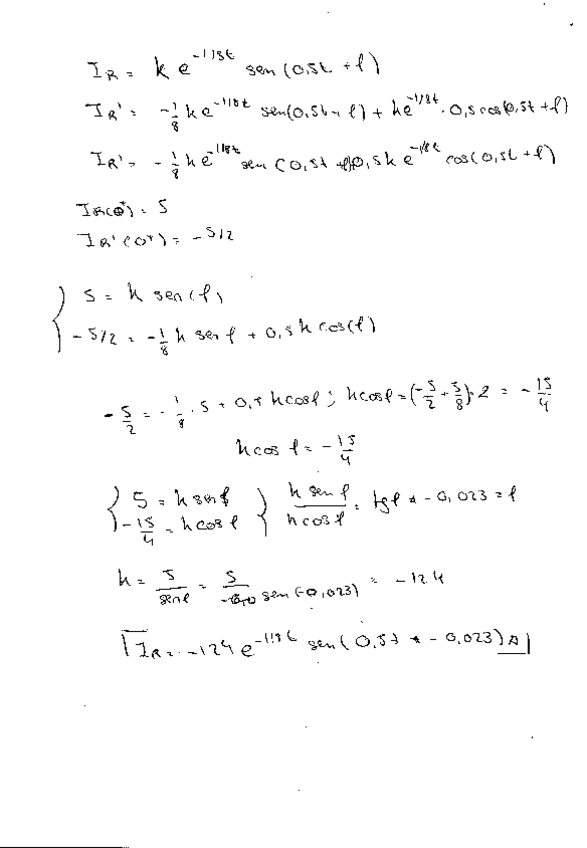 I_R = k e^{-1/8t} sen (0,5t + φ)
I_R' = -1/8 k e^{-1/8t} sen(0,5t + φ) + k e^{-1/8t} · 0,5 cos(0,5t + φ)
I_R' = -1/8 k e^{-1/8t} sen (0,5t + φ) 0,5 k e^{-1/8t} cos(0,5t + φ)
I_R(0⁺) = 5
I_R'(0⁺) = -5/2
{ 5 = k sen(φ)
-5/2 = -1/8 k sen φ + 0,5 k cos(φ)
-5/2 = -1/8 · 5 + 0,5 k cos φ ; k cos φ = (-5/2 + 5/8) · 2 = -15/4
k cos φ = -15/4
{ 5 = k sen φ } k sen φ / k cos φ = tg φ -0,023 = φ
-15/4 = k cos φ
k = 5/sen φ = 5/sen(-0,023) = -124
I_R = -124 e^{-1/8t} sen (0,5t - 0,023) A